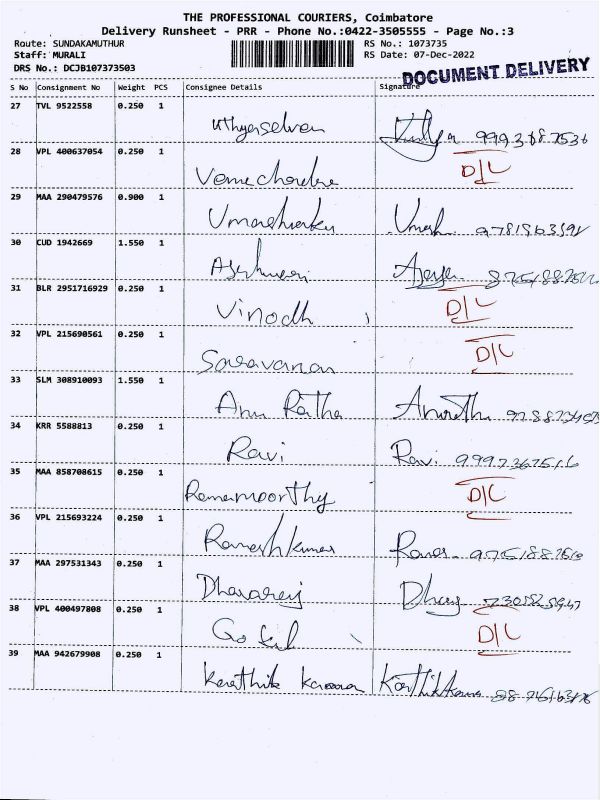 THE PROFESSIONAL COURIERS, Coimbatore
Delivery Runsheet - PRR - Phone No.:0422-3505555 - Page No.:3
Route: SUNDAKAMUTHUR RS No.: 1073735
Staff: MURALI RS Date: 07-Dec-2022
DRS No.: DCJB107373503
DOCUMENT DELIVERY
S No Consignment No Weight PCS Consignee Details Signature
27 TVL 9522558 0.250 1
28 VPL 400637054 0.250 1 D/L
29 MAA 290479576 0.900 1
30 CUD 1942669 1.550 1
31 BLR 2951716929 0.250 1 Vinodh D/L
32 VPL 215690561 0.250 1 Saravanan D/L
33 SLM 308910093 1.550 1 Anu Ratha
34 KRR 5588813 0.250 1 Ravi Ravi
35 MAA 858708615 0.250 1 Ramamoorthy D/L
36 VPL 215693224 0.250 1 Rameshkumar
37 MAA 297531343 0.250 1 Dhanaraj Dhanaraj
38 VPL 400497808 0.250 1 Gokul D/L
39 MAA 942679908 0.250 1 Karthik